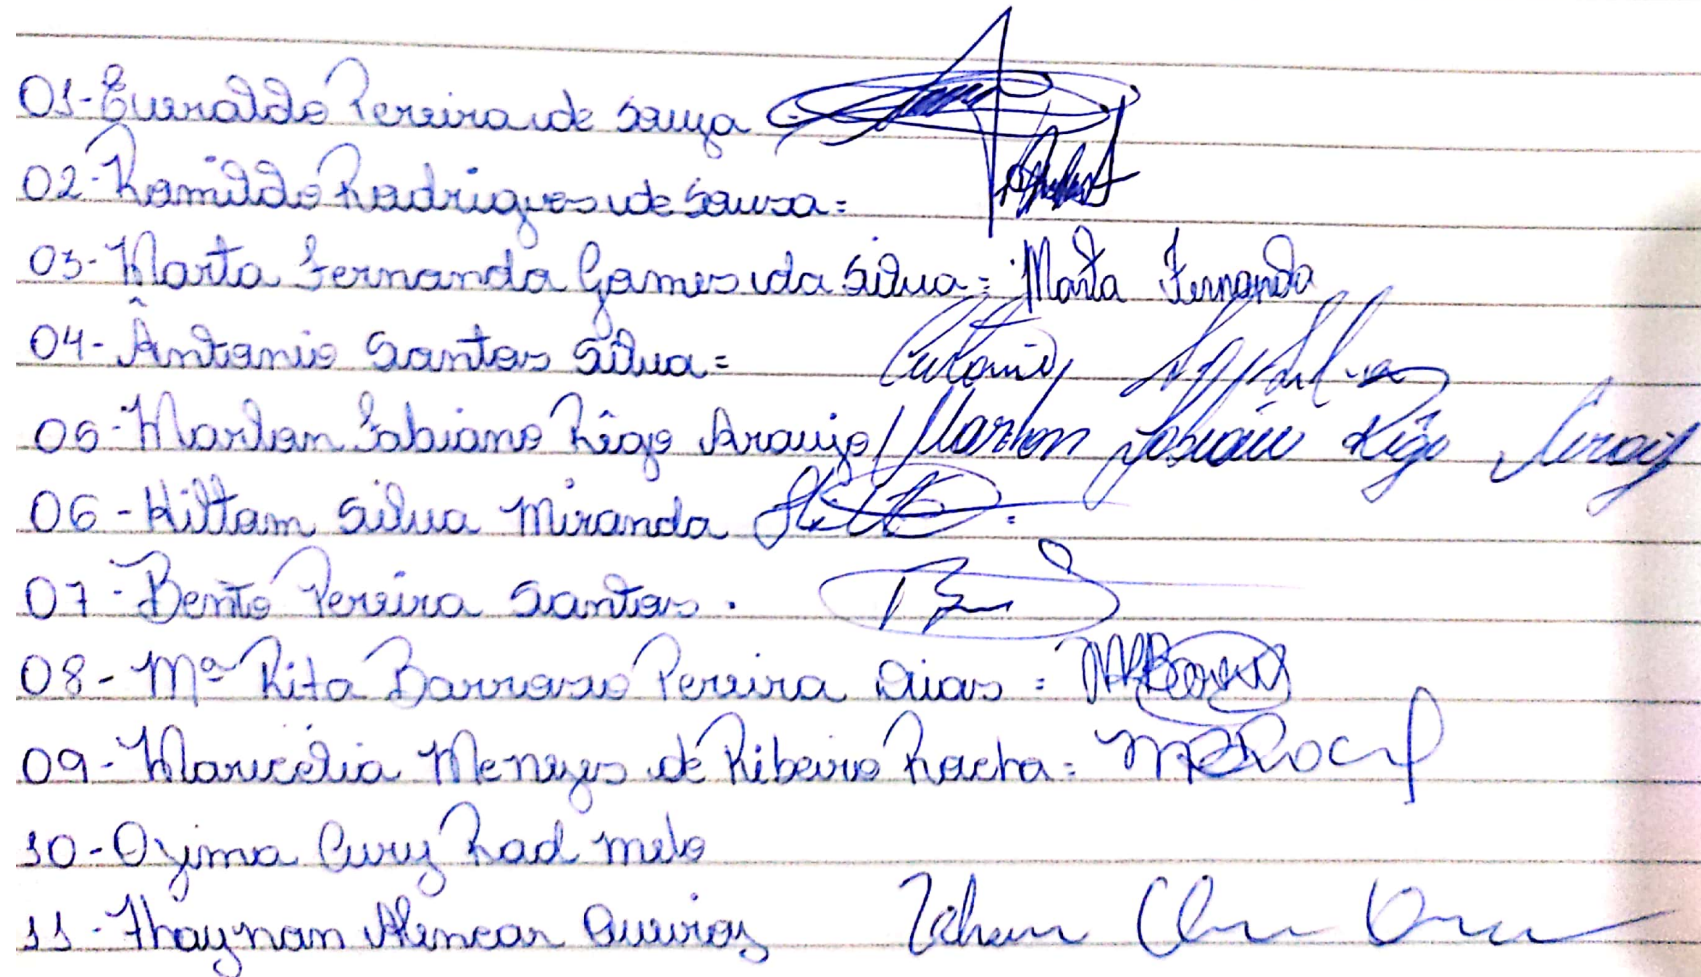 01-Everaldo Pereira de Souza
02-Ramildo Rodrigues de Sousa=
03-Marta Fernanda Gomes da Silva= Marta Fernanda
04-Antonio Santos Silva=
05-Marlon Fabiano Rêgo Araujo/ Marlon Fabiano Rêgo Araujo
06-Hiltam Silva Miranda
07-Bento Pereira Santos.
08-Mª Rita Barroso Pereira Dias=
09-Maricélia Menezes de Ribeiro Rocha=
10-Ozima Cury Rad melo
11-Thaynan Alencar Queiroz